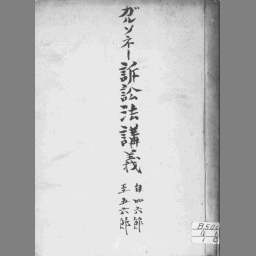 ガルソネー訴訟法講義
自四六節
至五六節